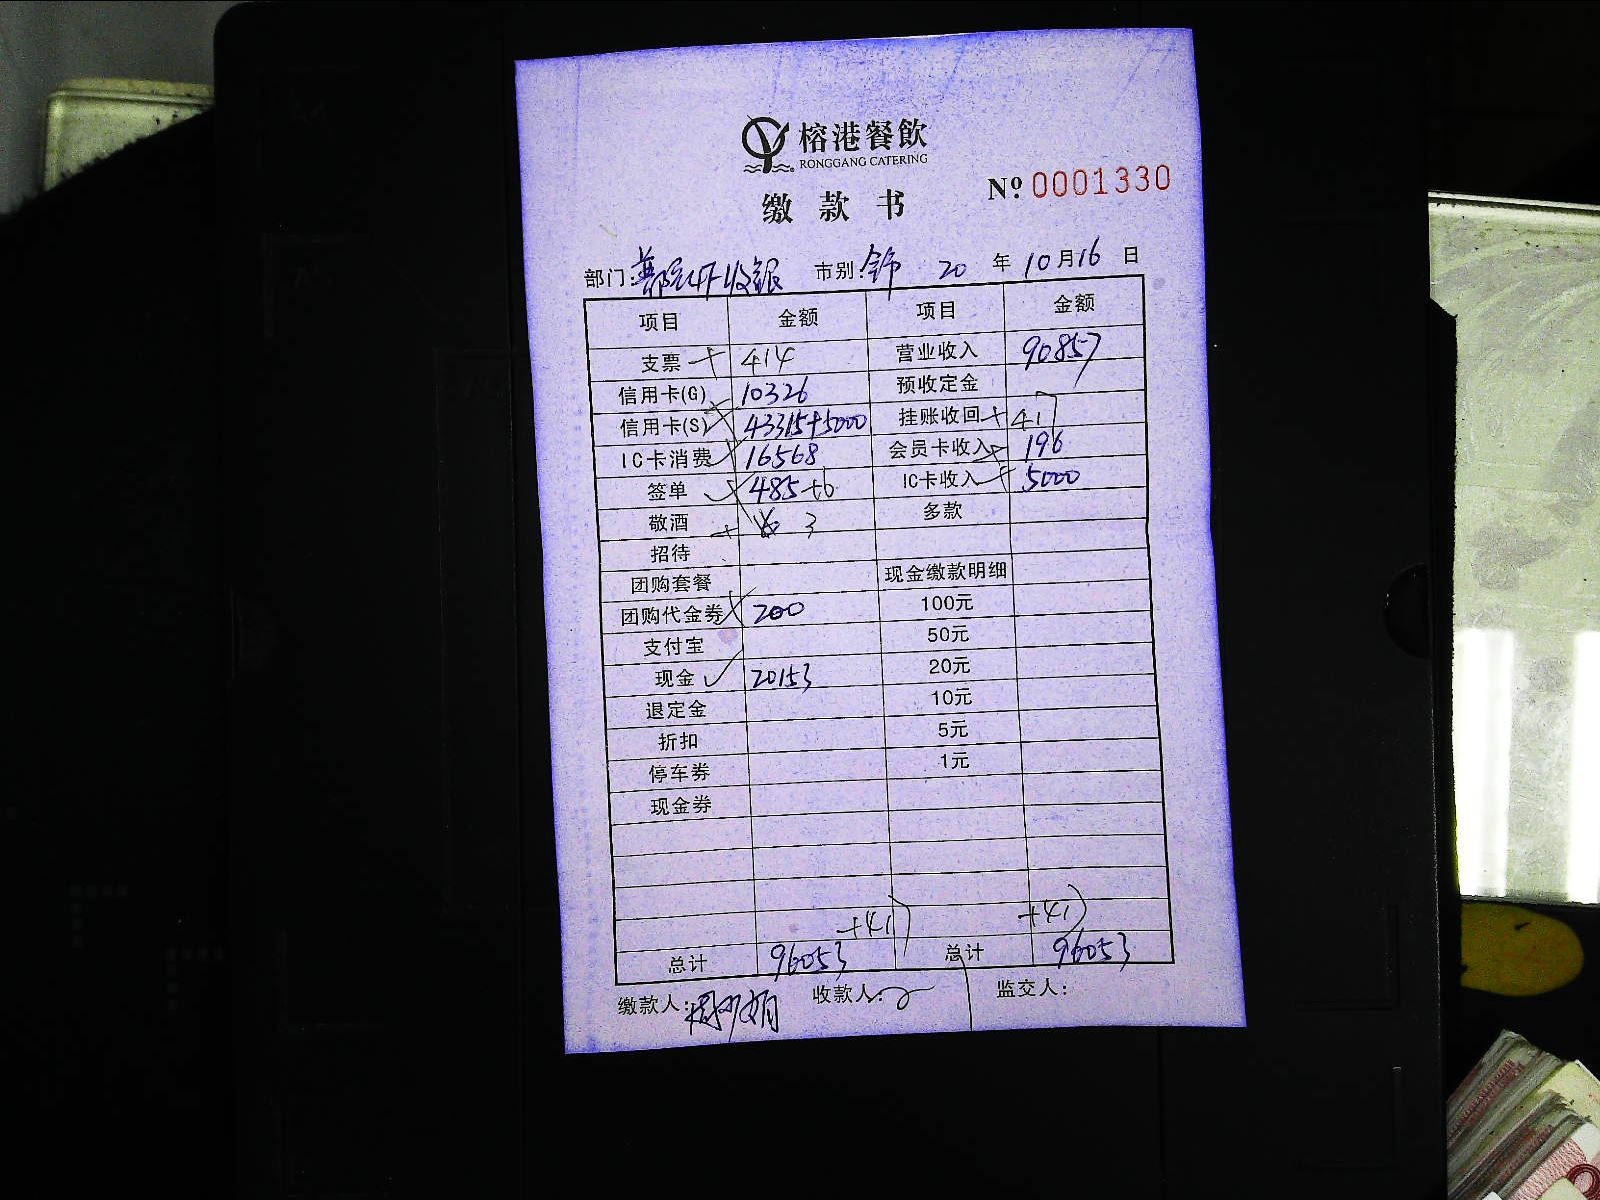 榕港餐飲
RONGGANG CATERING
缴款书 Nº 0001330
部门: 收银 市别: 20 年 10 月 16 日
项目 金额 项目 金额
支票 414 营业收入 90857
信用卡(G) 10326 预收定金
信用卡(S) 43315+5000 挂账收回 417
IC卡消费 16568 会员卡收入 196
签单 485+6 IC卡收入 5000
敬酒 3 多款
招待
团购套餐 现金缴款明细
团购代金券 200 100元
支付宝 50元
现金 20153 20元
退定金 10元
折扣 5元
停车券 1元
现金券
+417 +417
总计 96053 总计 96053
缴款人: 收款人: 监交人: